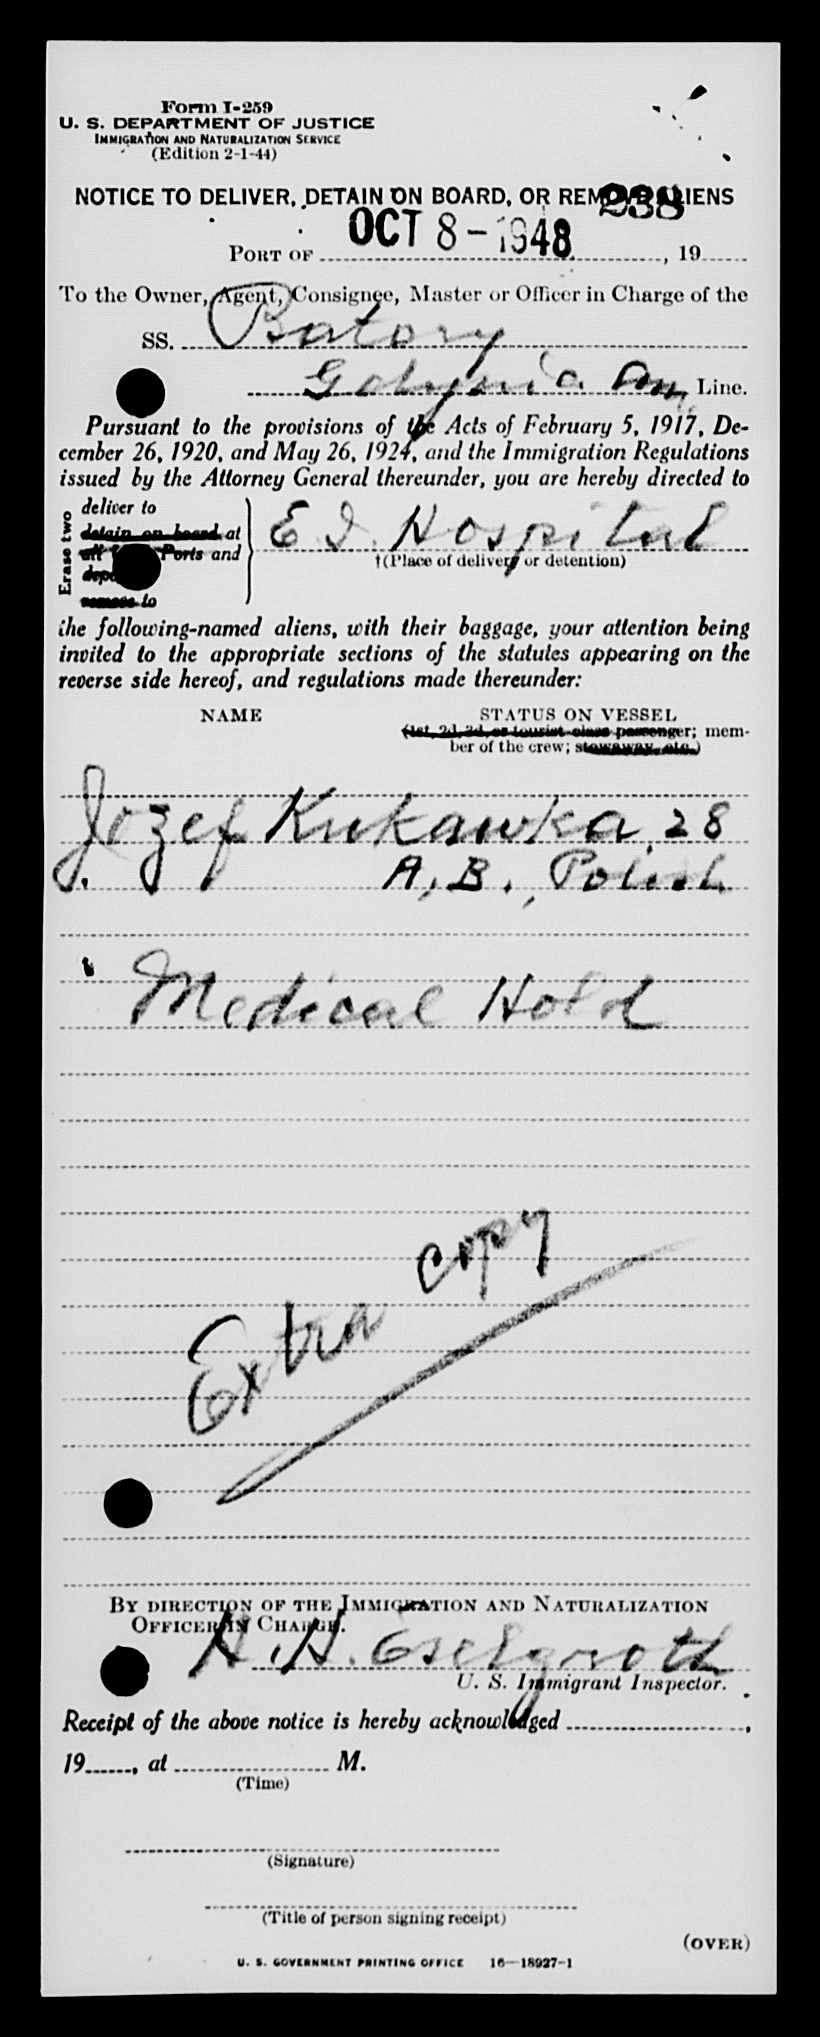 Form I-259
U. S. DEPARTMENT OF JUSTICE
IMMIGRATION AND NATURALIZATION SERVICE
(Edition 2-1-44)
NOTICE TO DELIVER, DETAIN ON BOARD, OR REMOVE ALIENS
238
OCT 8 - 1948
PORT OF ................, 19......
To the Owner, Agent, Consignee, Master or Officer in Charge of the
SS. Batory
Gdynia Am. Line.
Pursuant to the provisions of the Acts of February 5, 1917, De-
cember 26, 1920, and May 26, 1924, and the Immigration Regulations
issued by the Attorney General thereunder, you are hereby directed to
Erase two
deliver to
detain on board at
Ports and
remove to
E I. Hospital
†(Place of delivery or detention)
the following-named aliens, with their baggage, your attention being
invited to the appropriate sections of the statutes appearing on the
reverse side hereof, and regulations made thereunder:
NAME STATUS ON VESSEL
(1st, 2d, 3d, or tourist class passenger; mem-
ber of the crew; stowaway, etc.)
Jozef Kukawka, 28
A. B., Polish
Medical Hold
Extra copy
BY DIRECTION OF THE IMMIGRATION AND NATURALIZATION
OFFICER IN CHARGE.
H. H. Eselgroth
U. S. Immigrant Inspector.
Receipt of the above notice is hereby acknowledged ................,
19......, at ................ M.
(Time)
(Signature)
(Title of person signing receipt)
(OVER)
U. S. GOVERNMENT PRINTING OFFICE 16—18927-1